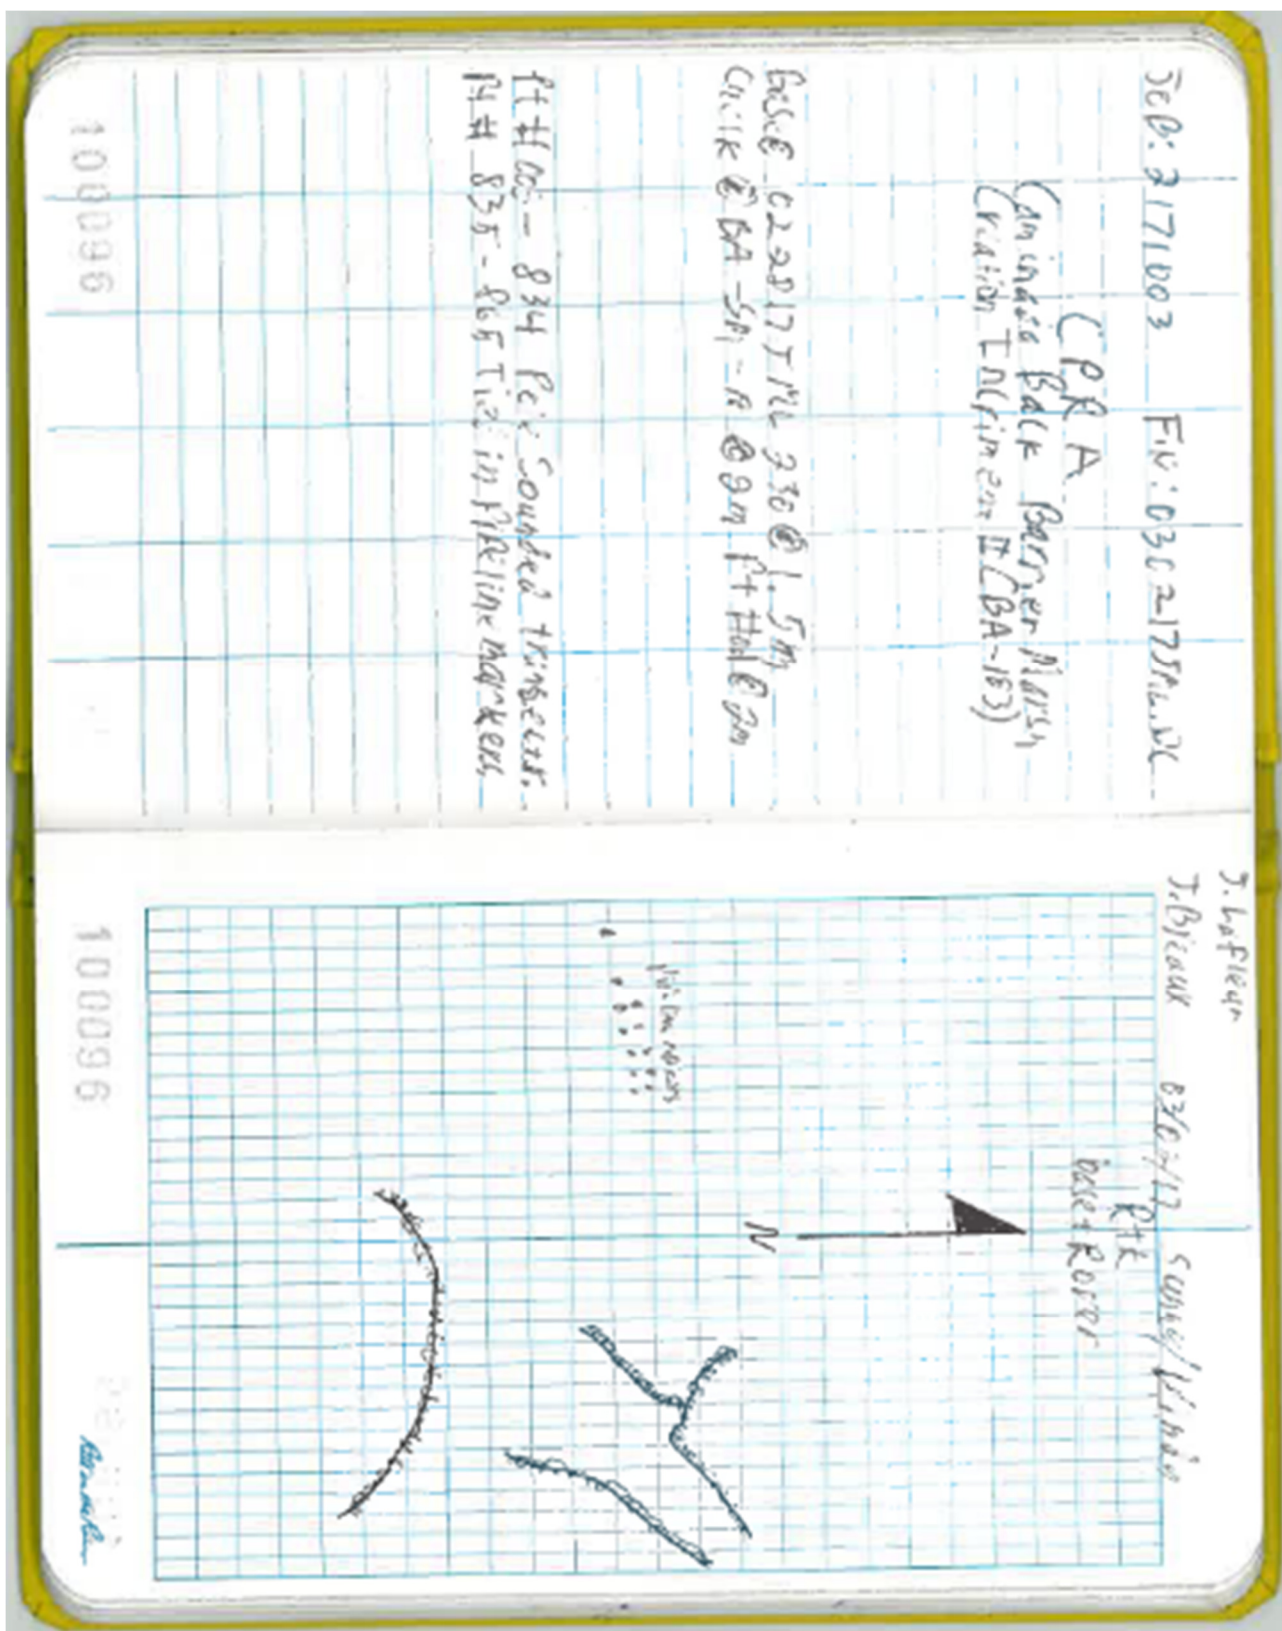 JOB: 2171003 FN: 030217JML.DC
CPRA
Caminada Back Barrier Marsh
Creation Increment II (BA-183)
BASE 022817JML 230 @ 1.5m
Check @ BA-SM- @ 2m Pt # @ 2m
Pt # - 834 Sounded transects.
Pt # 835 - 865 Tie in Pipeline markers
100096
J. Lafleur
J. Breaux 03/02/17 Sunny/Windy
RTK
base + Rover
N
100096